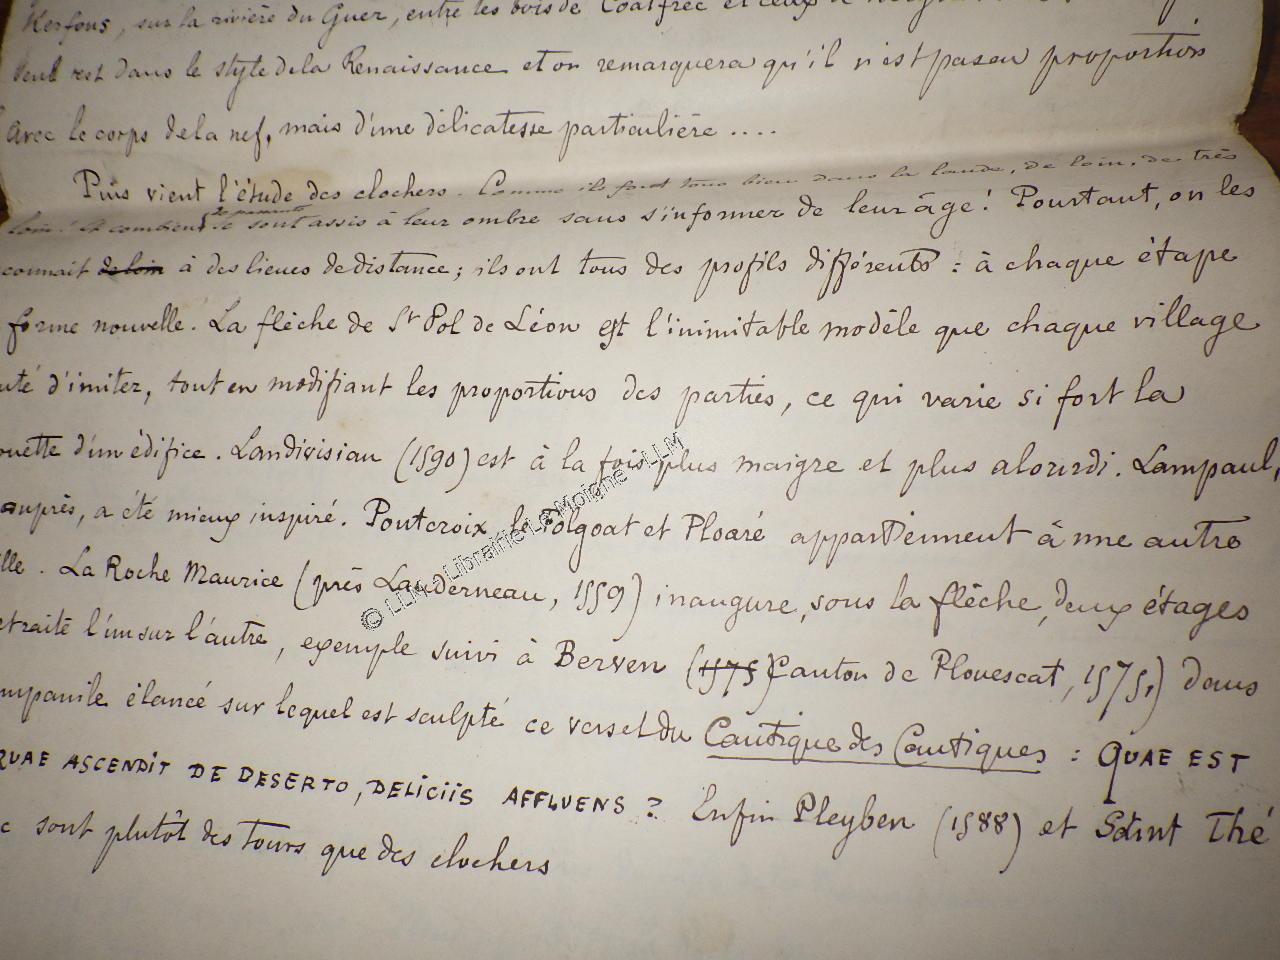 Kerfons, sur la rivière du Guer, entre les bois de Coatfrec et ceux
seul est dans le style de la Renaissance et on remarquera qu'il n'est pas en proportion
avec le corps de la nef, mais d'une délicatesse particulière ....
Puis vient l'étude des clochers. Comme ils font tous bien dans la lande, de loin, de très
loin! Et combien se sont assis à leur ombre sans s'informer de leur âge! Pourtant, on les
connait de loin à des lieues de distance; ils ont tous des profils différents : à chaque étape
forme nouvelle. La flèche de St Pol de Léon est l'inimitable modèle que chaque village
uté d'imiter, tout en modifiant les proportions des parties, ce qui varie si fort la
ouette d'un édifice. Landivisiau (1590) est à la fois plus maigre et plus alourdi. Lampaul,
auprès, a été mieux inspiré. Pontcroix, le Folgoat et Ploaré appartiennent à une autre
ille. La Roche Maurice (près Landerneau, 1559) inaugure, sous la flèche, deux étages
etraite l'un sur l'autre, exemple suivi à Berven (1575) Canton de Plouescat, 1575,) dans
mpanile élancé sur lequel est sculpté ce verset du Cantique des Cantiques : QUAE EST
QUAE ASCENDIT DE DESERTO, DELICIIS AFFLUENS? Enfin Pleyben (1588) et Saint Thé
c sont plutôt des tours que des clochers
© LLM - Librairie Le Moigne - LLM